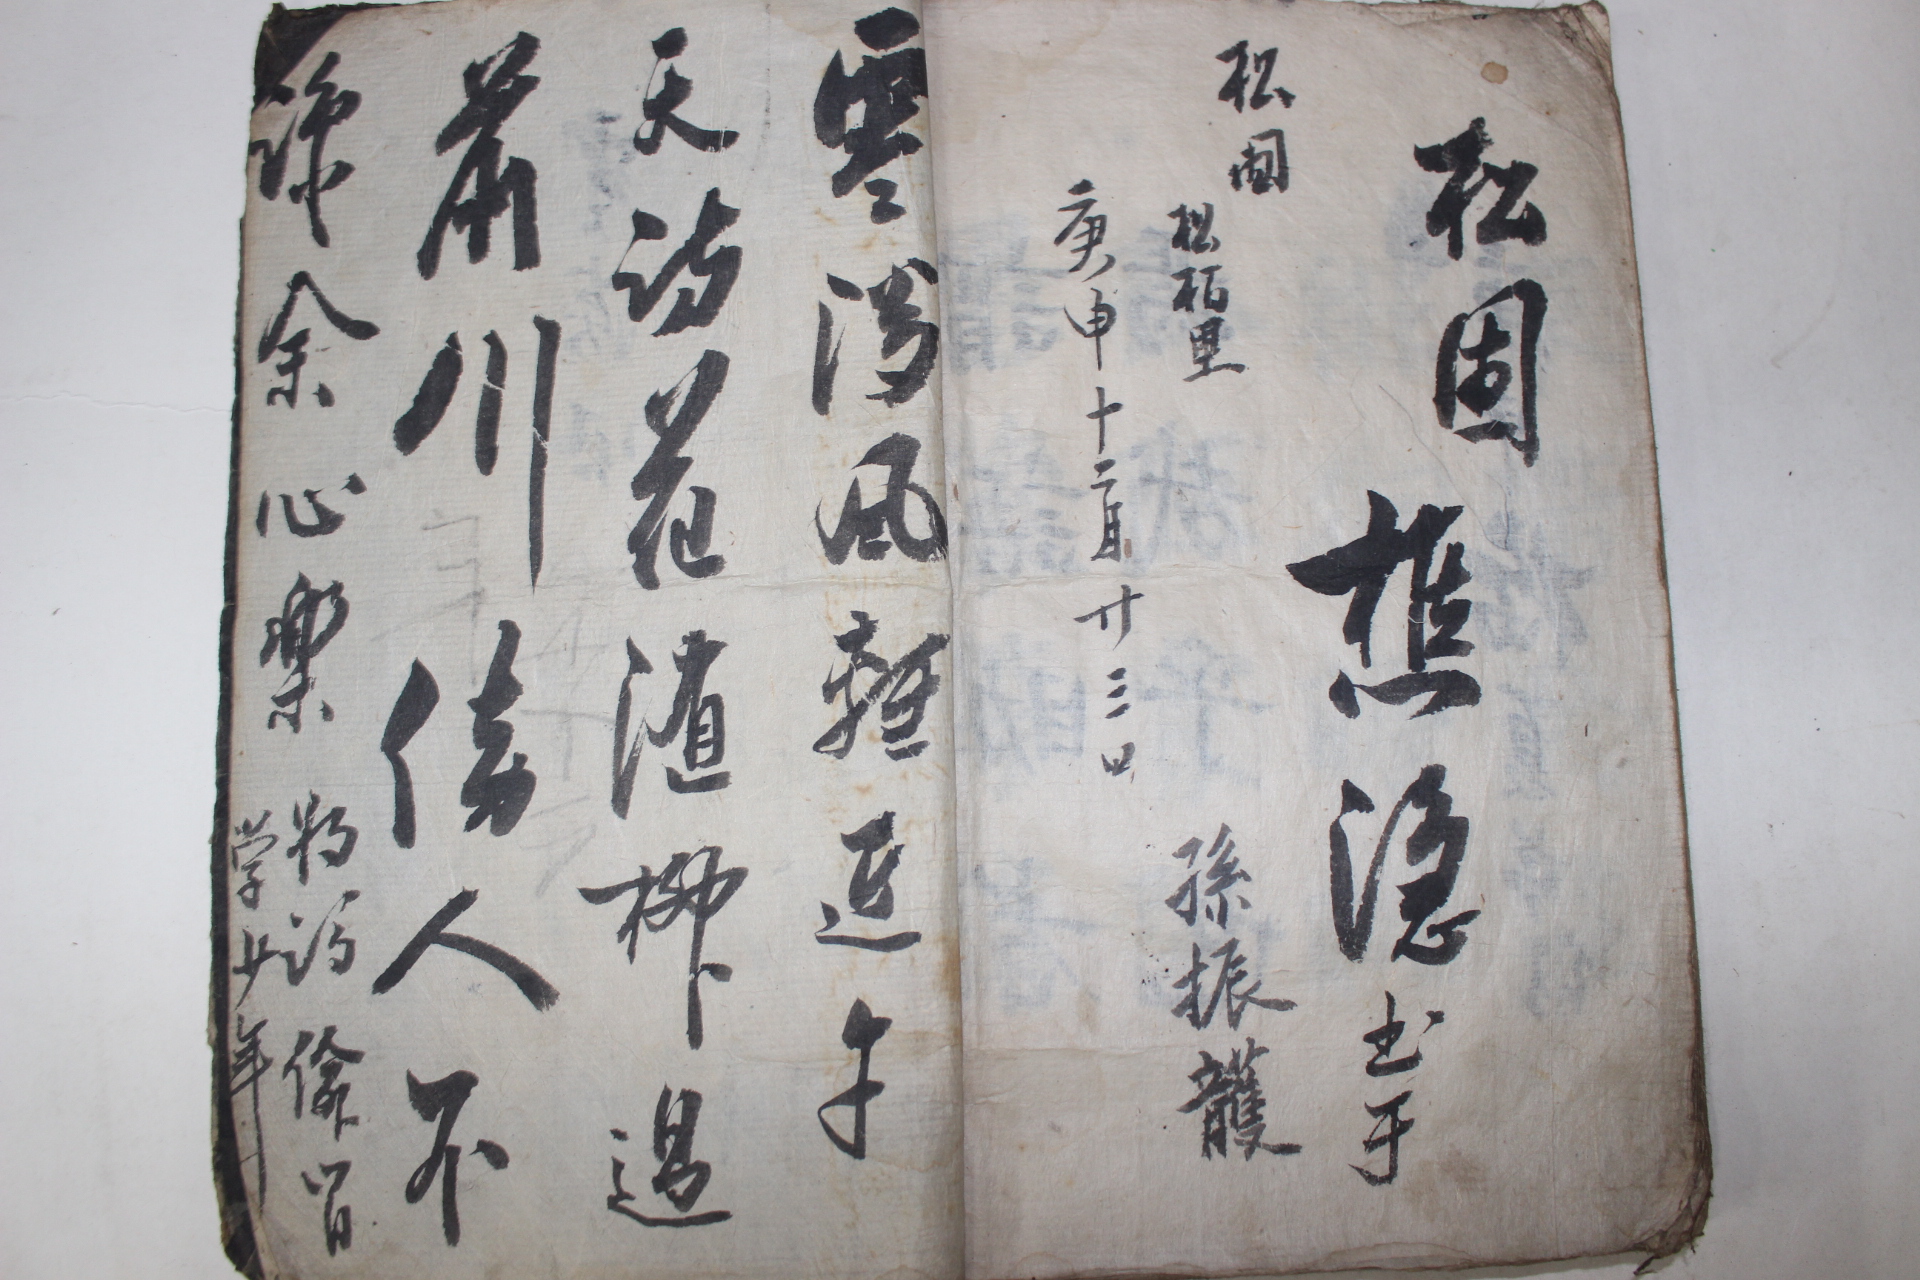 松固樵隱书手
松固
松栢里 孫振
庚申十二月廿三日
雲淡風輕近午
天訪花随柳過
前川傍人不
識余心樂將謂偸閒
学少年